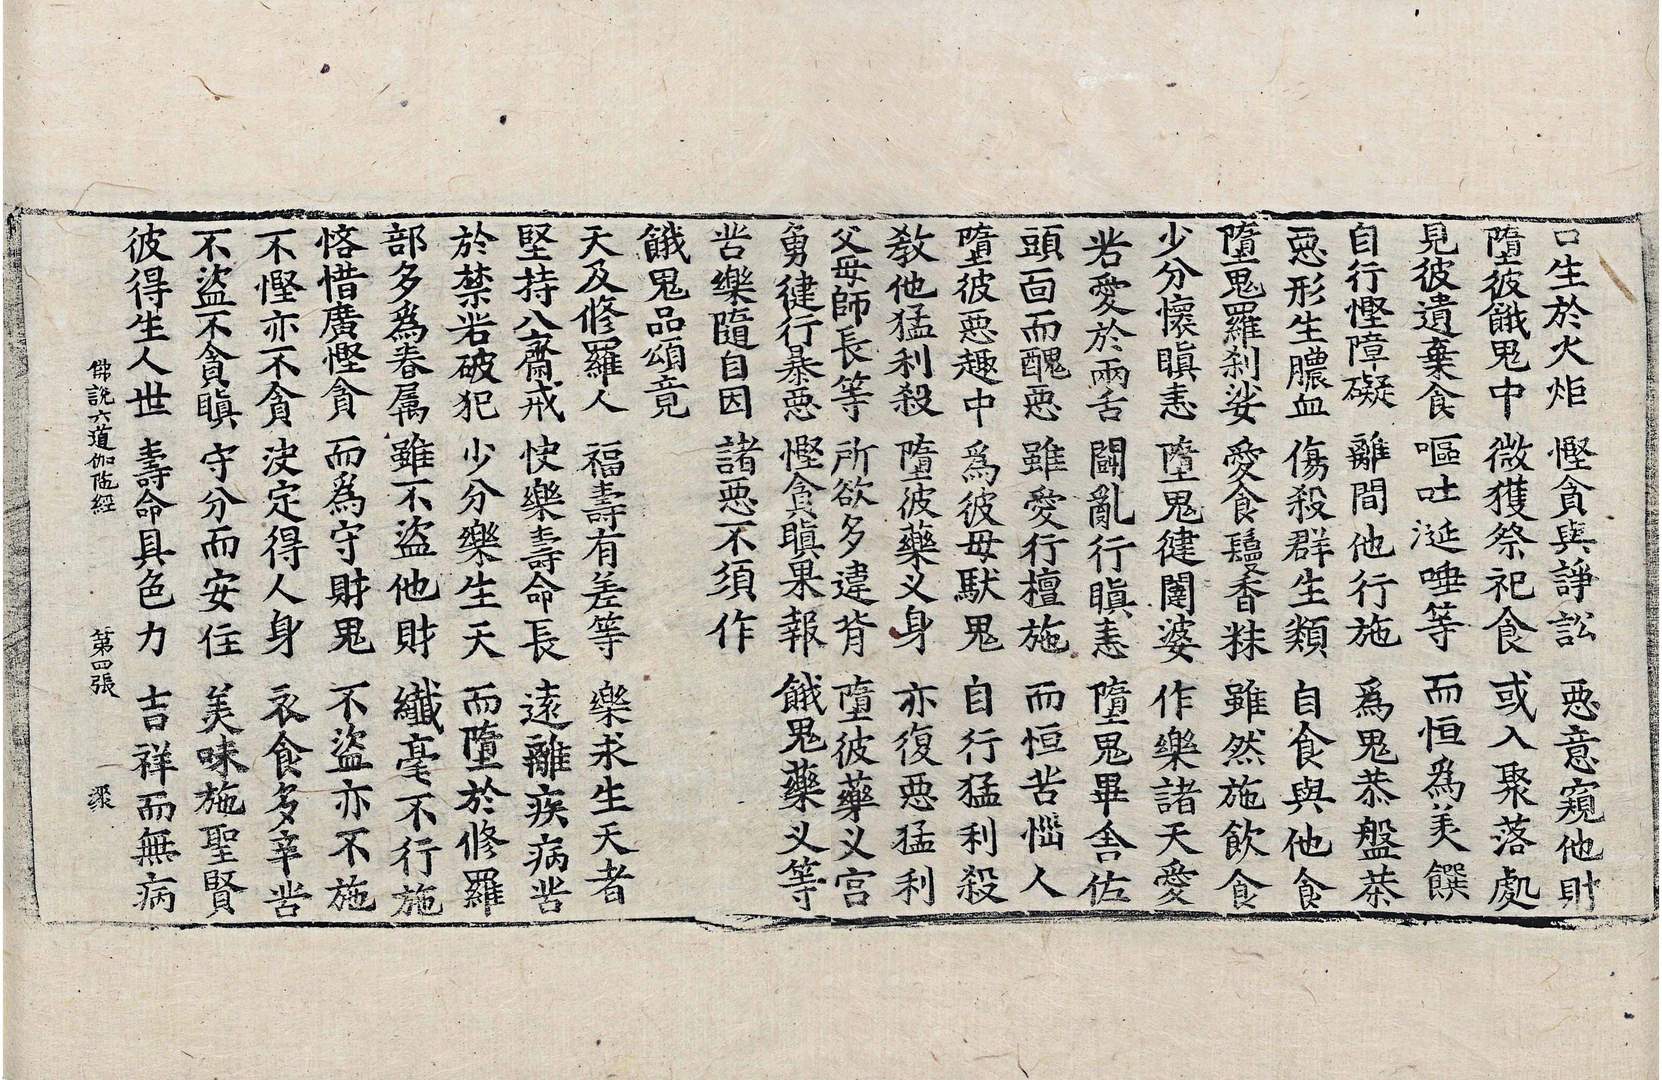 口生於火炬 慳貪與諍訟 惡意窺他財
墮彼餓鬼中 微獲祭祀食 或入聚落處
見彼遺棄食 嘔吐涎唾等 而恒為美饌
自行慳障礙 離間他行施 為鬼恭盤茶
惡形生膿血 傷殺群生類 自食與他食
墮鬼羅剎娑 愛食鬘香粖 雖然施飲食
少分懷瞋恚 墮鬼健闥婆 作樂諸天愛
若愛於兩舌 鬪亂行瞋恚 墮鬼畢舍佐
頭面而醜惡 雖愛行檀施 而恒苦惱人
墮彼惡趣中 為彼毋馱鬼 自行猛利殺
教他猛利殺 墮彼藥叉身 亦復惡猛利
父母師長等 所欲多違背 墮彼藥叉宮
勇健行暴惡 慳貪瞋果報 餓鬼藥叉等
苦樂隨自因 諸惡不須作
餓鬼品頌竟
天及修羅人 福壽有差等 樂求生天者
堅持八齋戒 快樂壽命長 遠離疾病苦
於禁若破犯 少分樂生天 而墮於修羅
部多為眷属 雖不盜他財 纖毫不行施
悋惜廣慳貪 而為守財鬼 不盜亦不施
不慳亦不貪 決定得人身 衣食多辛苦
不盜不貪瞋 守分而安住 美味施聖賢
彼得生人世 壽命具色力 吉祥而無病
佛說六道伽陁經 第四張